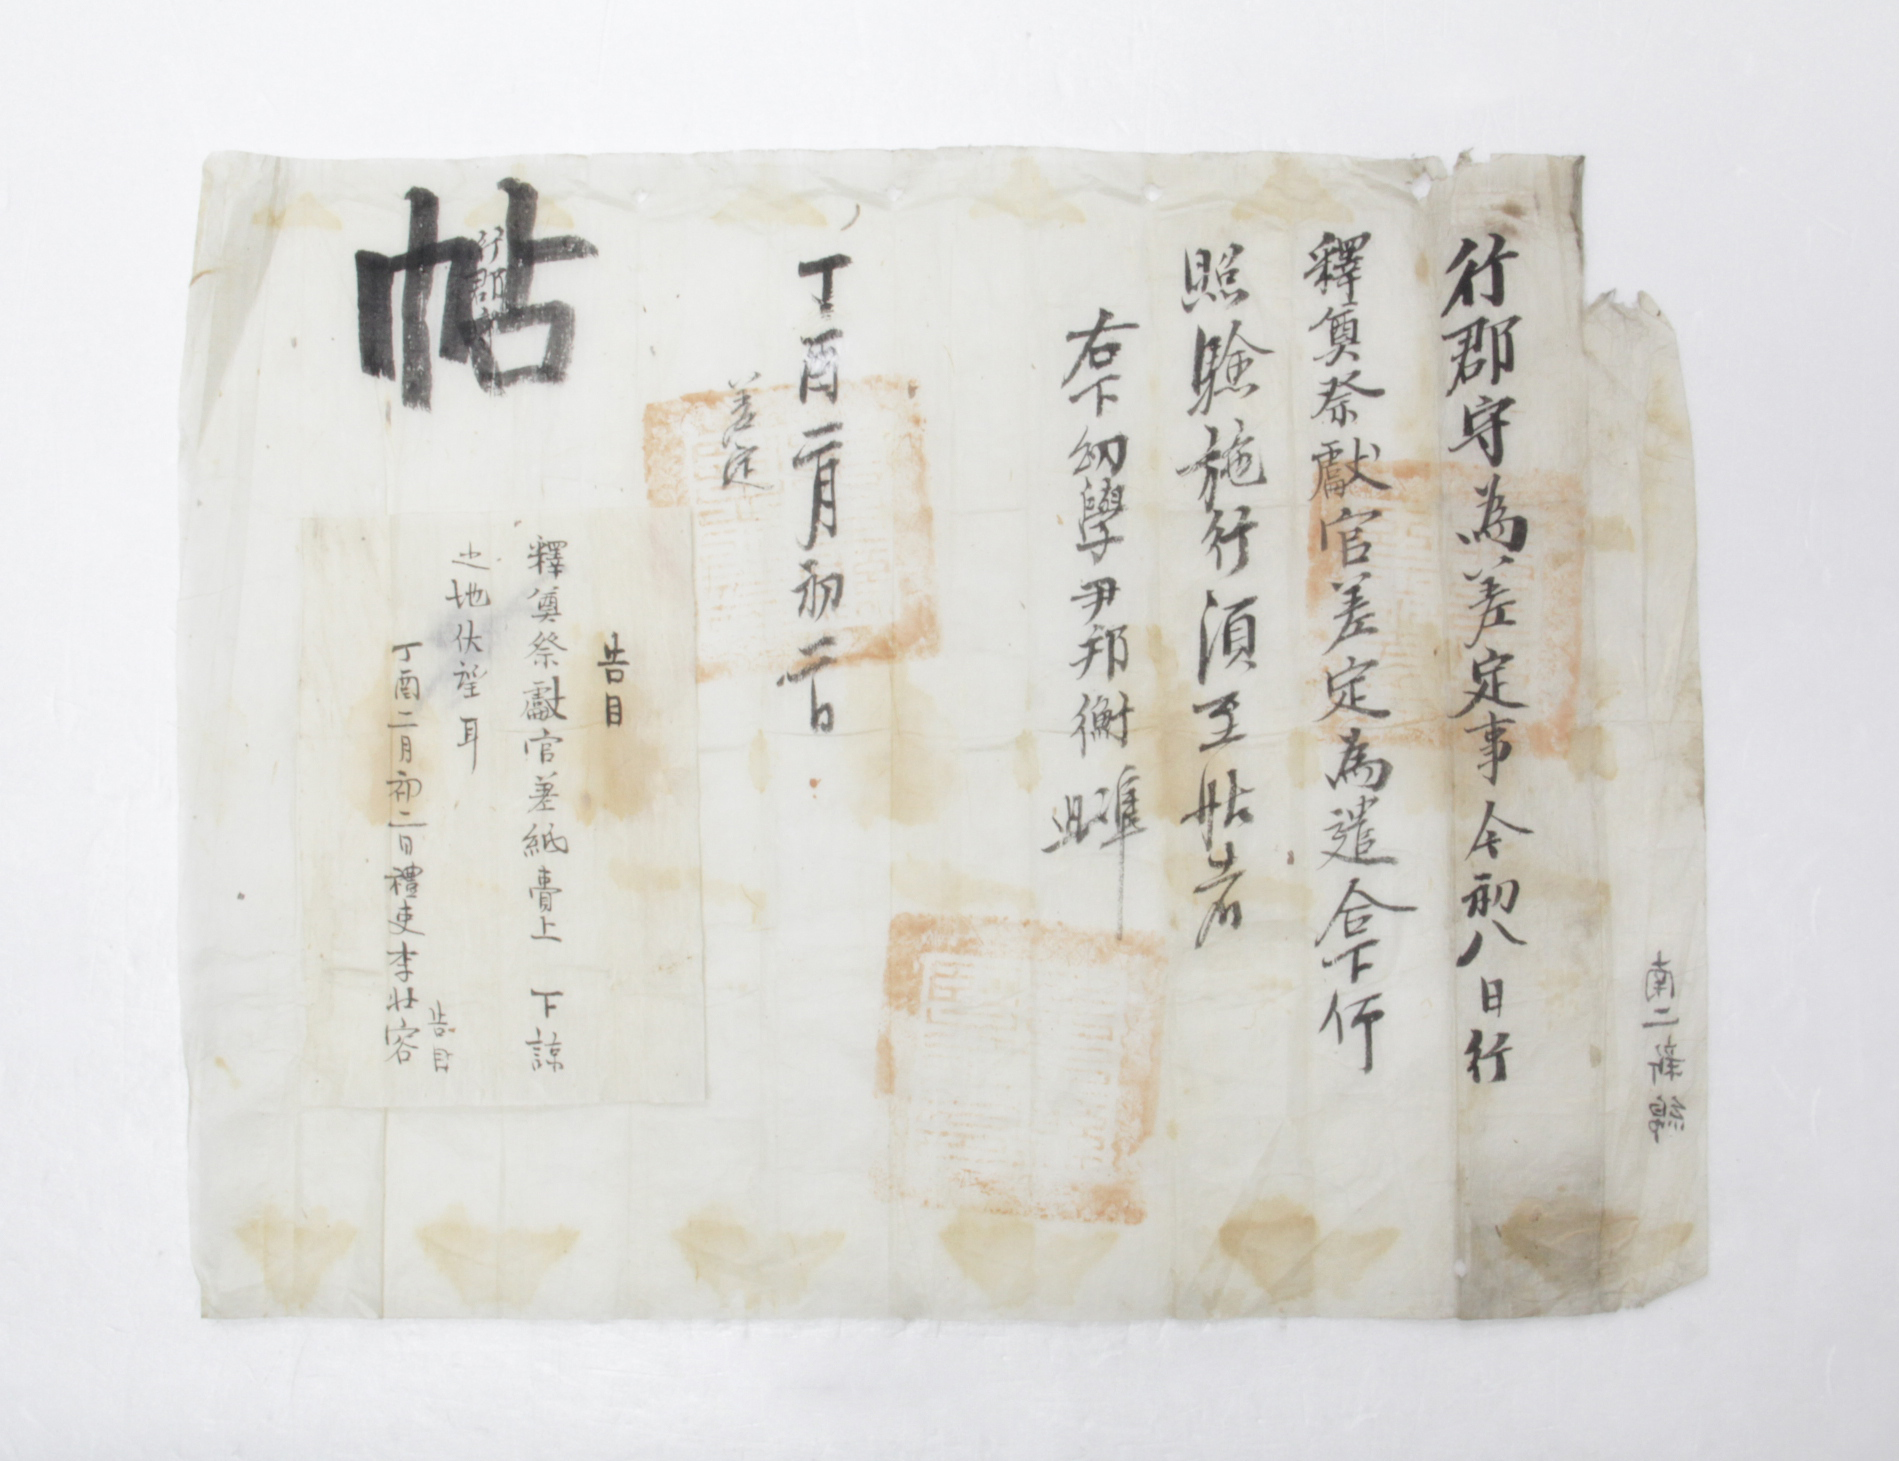 行郡守為差定事今初八日行
釋奠祭獻官差定為遣合下仰
照驗施行須至帖者
右下幼學尹邦衡 准此
丁酉二月初二日
差定
帖
行郡
告目
釋奠祭獻官差紙賷上 下諒
之地伏望耳
丁酉二月初二日禮吏李壯容
告目
南二新